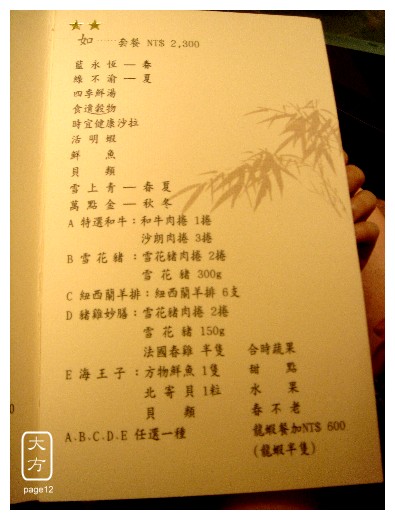 如……套餐 NT$ 2,300
藍永恆 — 春
綠不渝 — 夏
四季鮮湯
食遺穀物
時宜健康沙拉
活明蝦
鮮魚
貝類
雪上青 — 春夏
萬點金 — 秋冬
A 特選和牛：和牛肉捲 1捲
沙朗肉捲 3捲
B 雪花豬：雪花豬肉捲 2捲
雪花豬 300g
C 紐西蘭羊排：紐西蘭羊排 6支
D 豬雞妙膳：雪花豬肉捲 2捲
雪花豬 150g
法國春雞 半隻 合時蔬果
E 海王子：方物鮮魚 1隻 甜點
北寄貝 1粒 水果
貝類 春不老
A、B、C、D、E 任選一種 龍蝦餐加NT$ 600
(龍蝦半隻)
大方
page12